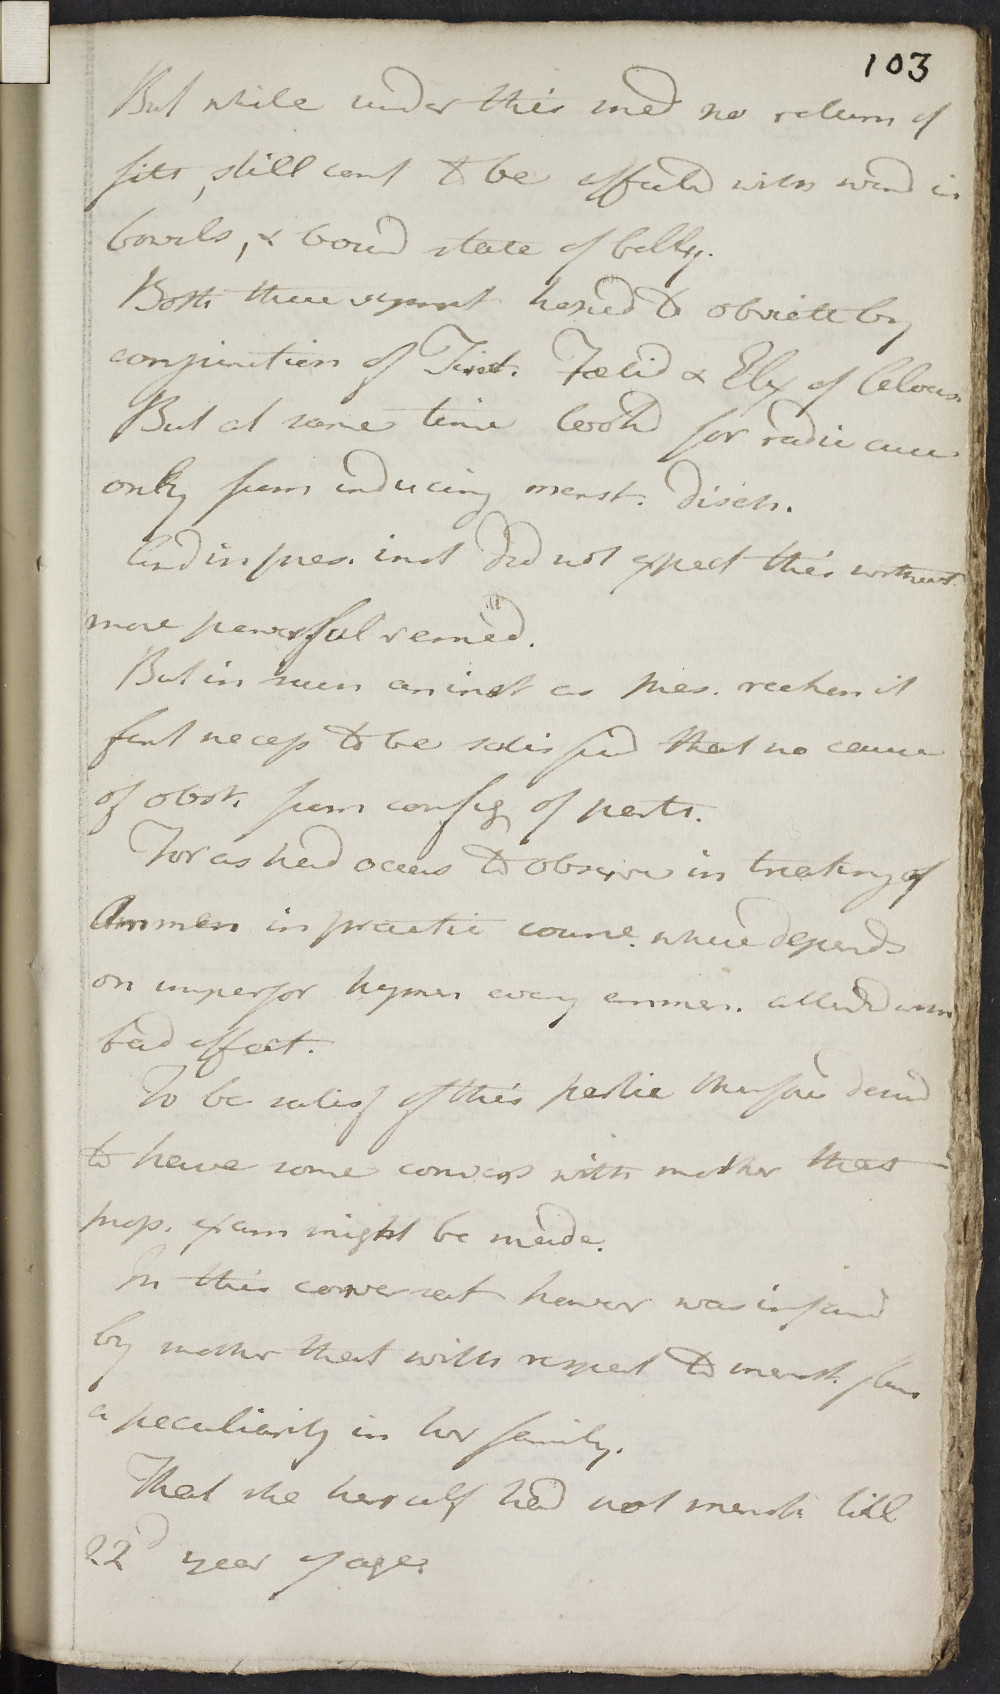 103
But while under this med no return of
fits, still cont to be affected with wind in
bowels, & bound state of belly.
Both these sympt hoped to obviate by
conjunction of Tinct. Foetid & Elix of Aloes.
But at same time look'd for radic cure
only from inducing menst. disch.
And in pres. inst did not expect this without
more powerful remed.
But in such an inst as pres. reckon it
first necess to be satisfied that no cause
of obst. from config of parts.
For as had occas to observe in treating of
Ammen in practic course where depends
on imperfor hymen every emmen. attended with
bad effect.
To be satisf of this partic therefore desired
to have some convers with mother that
prop. exam might be made.
In this conversat however was inform'd
by mother that with respect to menst. flux
a peculiarity in her family.
That she herself had not menst till
22d year of age.